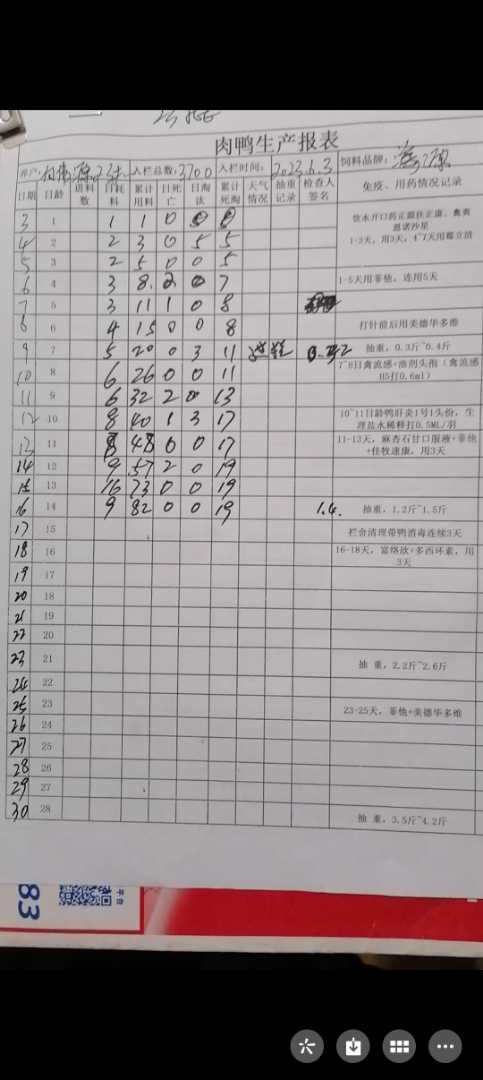 肉鸭生产报表
养户: 入栏总数: 3700 入栏时间: 2023.6.3 饲料品牌:
日期 日龄 进料数 日耗料 累计用料 日死亡 日淘汰 累计死淘 天气情况 抽重记录 检查人签名 免疫、用药情况记录
3 1 1 1 0 0 0 饮水开口药正源扶正康、禽禽恩诺沙星
4 2 2 3 0 5 5 1-3天，用3天，4~7天用霉立清
5 3 2 5 0 0 5
6 4 3 8 2 0 7 1-5天用菲他，连用5天
7 5 3 11 1 0 8
8 6 4 15 0 0 8 打针前后用美德华多维
9 7 5 20 0 3 11 抽重，0.3斤~0.4斤
10 8 6 26 0 0 11 7~8日禽流感+油剂头孢（禽流感H5打0.6ml）
11 9 6 32 2 0 13
12 10 8 40 1 3 17 10~11日龄鸭肝炎1号1头份，生理盐水稀释打0.5ML/羽
13 11 8 48 0 0 17 11-13天，麻杏石甘口服液+菲他+住牧速康，用3天
14 12 9 57 2 0 19
15 13 16 73 0 0 19
16 14 9 82 0 0 19 1.4. 抽重，1.2斤~1.5斤
17 15 栏舍清理带鸭消毒连续3天
18 16 16-18天，富络欣+多西环素，用3天
19 17
20 18
21 19
22 20
23 21 抽 重，2.2斤~2.6斤
24 22
25 23 23-25天，菲他+美德华多维
26 24
27 25
28 26
29 27
30 28 抽 重，3.5斤~4.2斤
83
平台